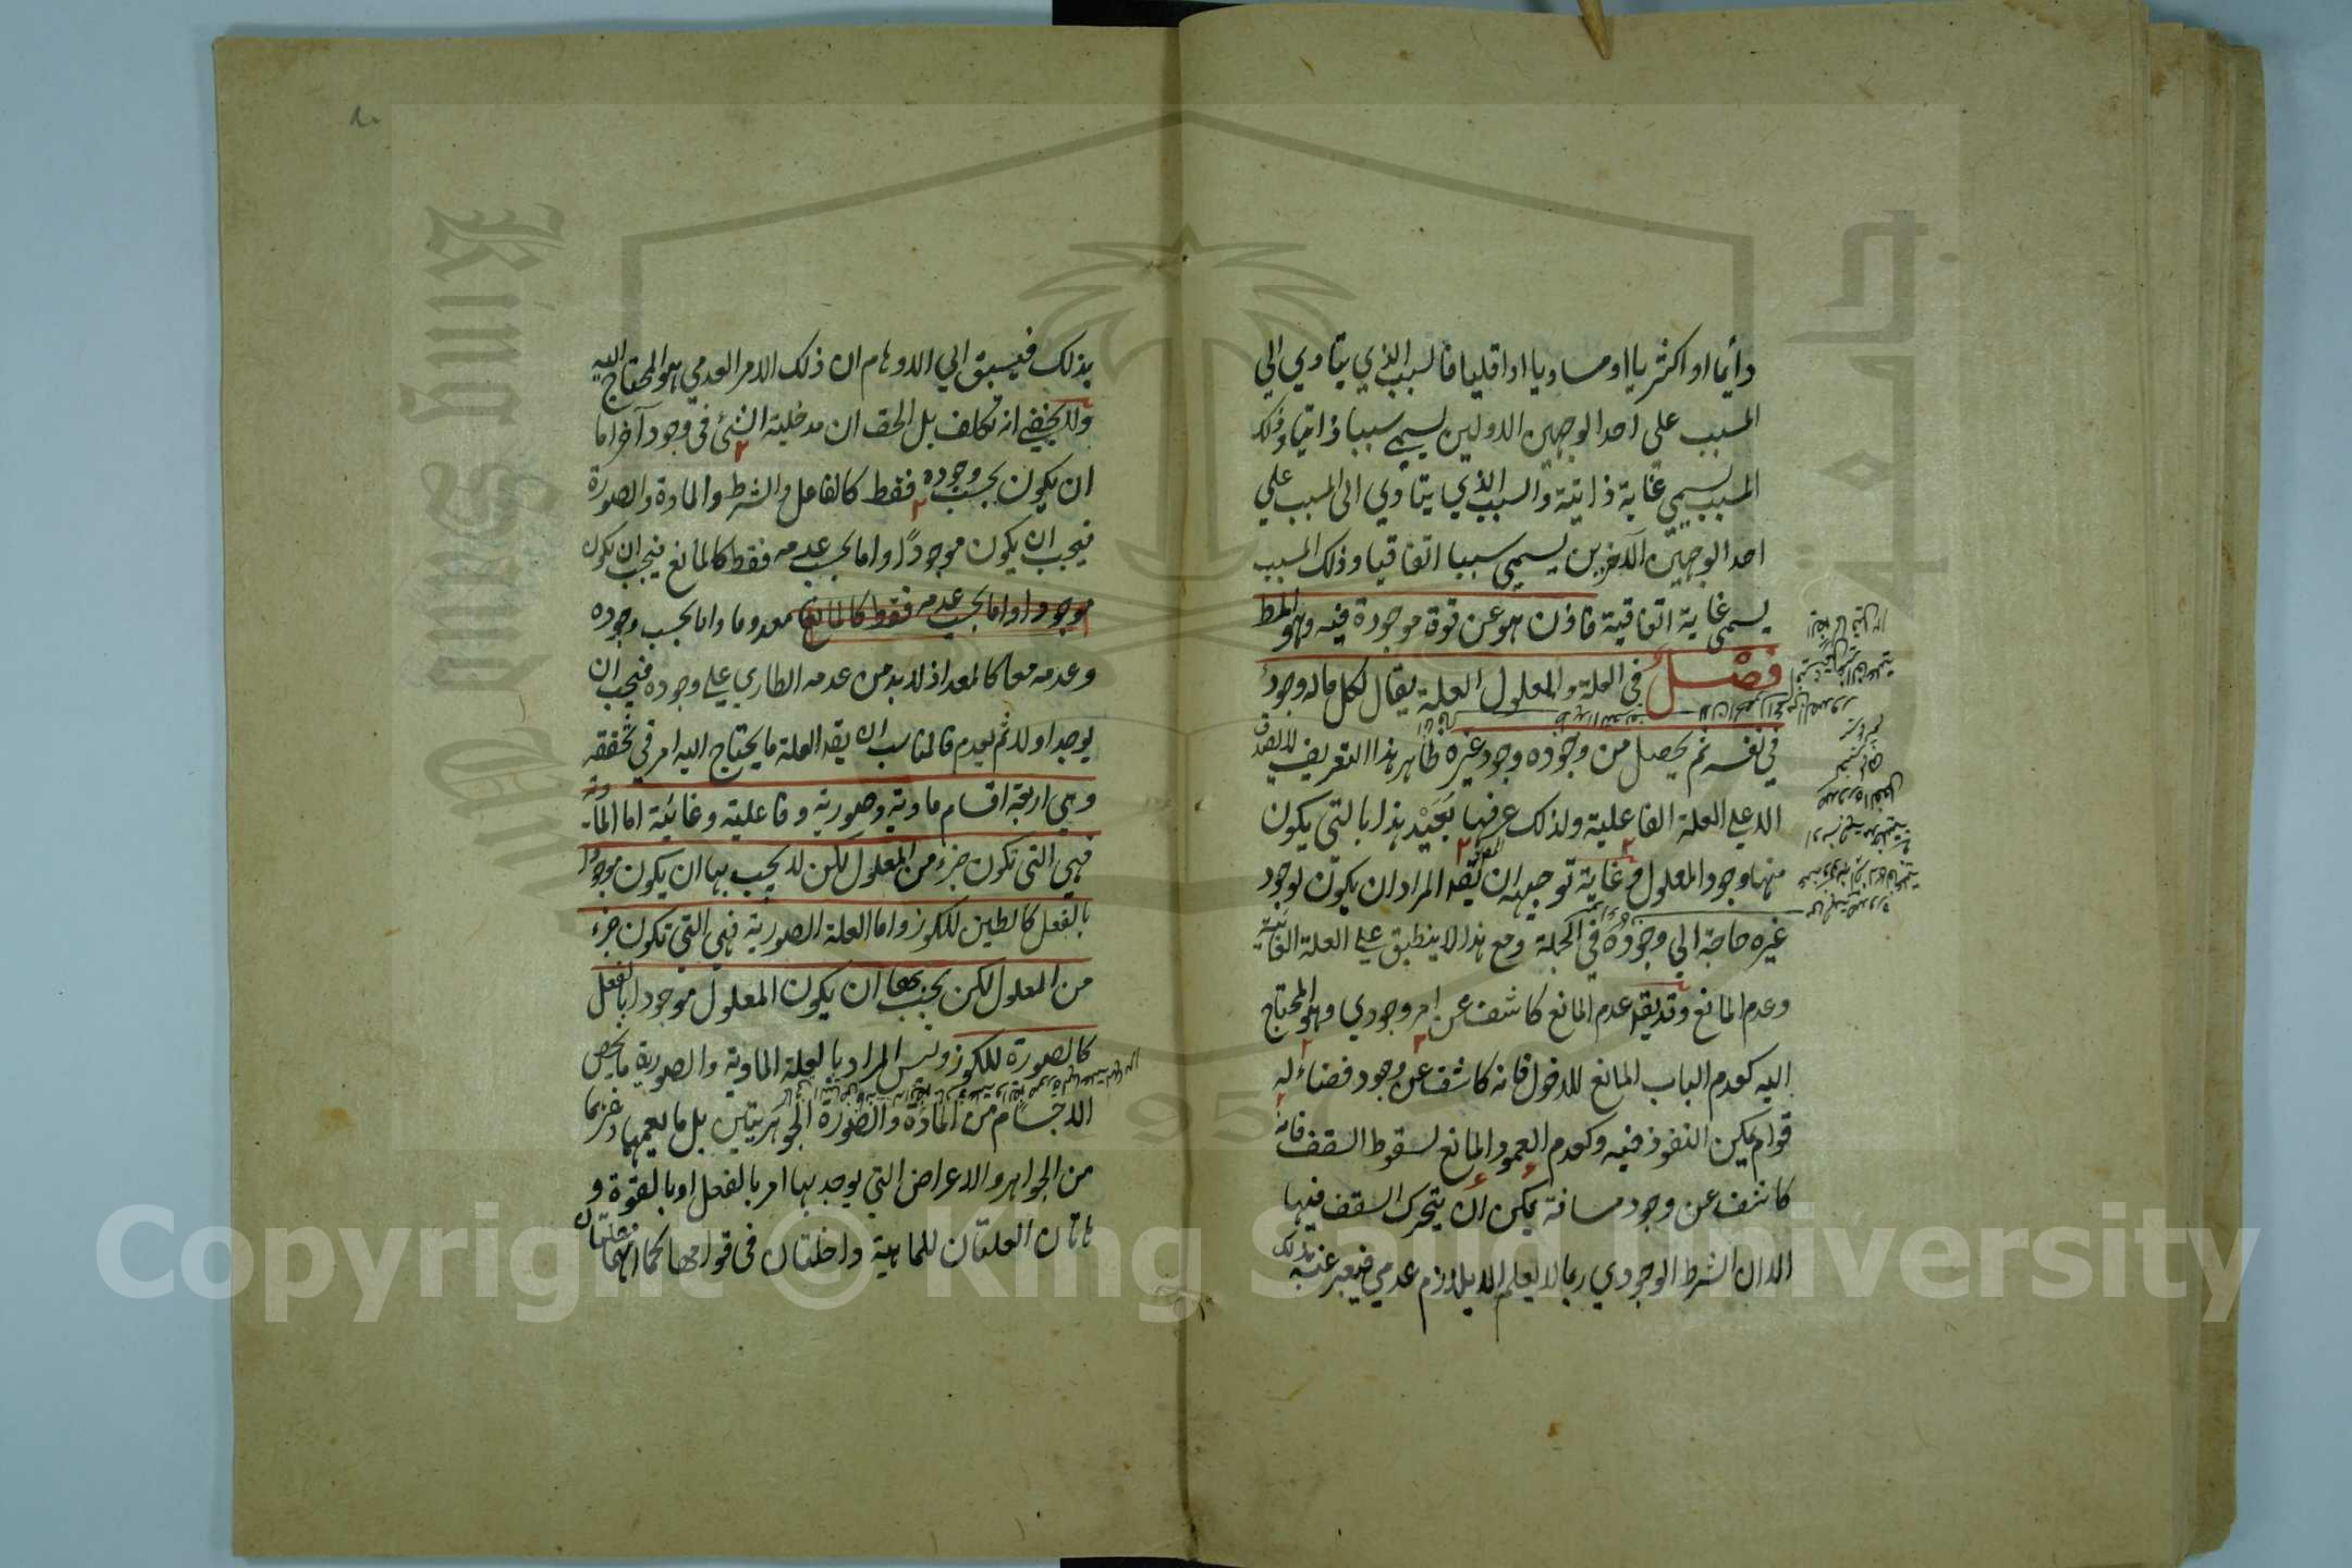 دائما او اكثريا او مساويا او اقليا فالسبب الذي يتادي الي
المسبب على احد الوجهين الاولين يسمي سببا ذاتيا وذلك
المسبب يسمي غاية ذاتية والسبب الذي يتادي الى المسبب علي
احد الوجهين الآخرين يسمي سببا اتفاقيا وذلك المسبب
يسمي غاية اتفاقية فاذن هو عن قوة موجودة فيه وهو المط
فصل في العلة والمعلول العلة يقال لكل ماله وجود
في نفسه ثم يحصل من وجوده وجود غيره ظاهر هذا التعريف لا يصدق
الا علي العلة الفاعلية ولذلك عرفها بعيد هذا بالتي يكون
منها وجود المعلول وغاية توجيهه ان يقه المراد ان يكون لوجود
غيره حاجة الي وجوده في الجملة ومع هذا لا ينطبق علي العلة الغائية
وعدم المانع وقد يقه عدم المانع كاشف عن امر وجودي وهو المحتاج
اليه كعدم الباب المانع للدخول فانه كاشف عن وجود فضاء له
قوام يمكن النفوذ فيه وكعدم العمود المانع لسقوط السقف فانه
كاشف عن وجود مسافة يمكن ان يتحرك السقف فيها
الا ان الشرط الوجودي ربما لا يعلم الا بلازم عدمي فيعبر عنه بذلك
بذلك فيسبق الي الاوهام ان ذلك الامر العدمي هو المحتاج اليه
ولا يخفي انه تكلف بل الحق ان مدخلية الشئ في وجود آخر اما
ان يكون بحسب وجوده فقط كالفاعل والشرط والمادة والصورة
فيجب ان يكون موجودًا واما بحسب عدمه فقط كالمانع فيجب ان يكون
موجودا واما بحسب عدمه فقط كالمانع معدوما واما بحسب وجوده
وعدمه معا كالمعد اذ لا بد من عدمه الطاري علي وجوده فيجب ان
يوجد اولا ثم يعدم فالمناسب ان يقه العلة ما يحتاج اليه امر في تحققه
وهي اربعة اقسام مادية وصورية وفاعلية وغائية اما الما-دية
فهي التي تكون جزء من المعلول لكن لا يجب بها ان يكون موجودا
بالفعل كالطين للكوز واما العلة الصورية فهي التي تكون جزء
من المعلول لكن يجب بها ان يكون المعلول موجودا بالفعل
كالصورة للكوز وليس المراد بالعلة المادية والصورية ما يخص
الاجسام من المادة والصورة الجوهريتين بل ما يعمهما وغيرهما
من الجواهر والاعراض التي يوجد بها امر بالفعل او بالقوة و
هاتان العلتان للماهية داخلتان في قوامها كما انهما علتان
King Saud University
1957
Copyright © King Saud University